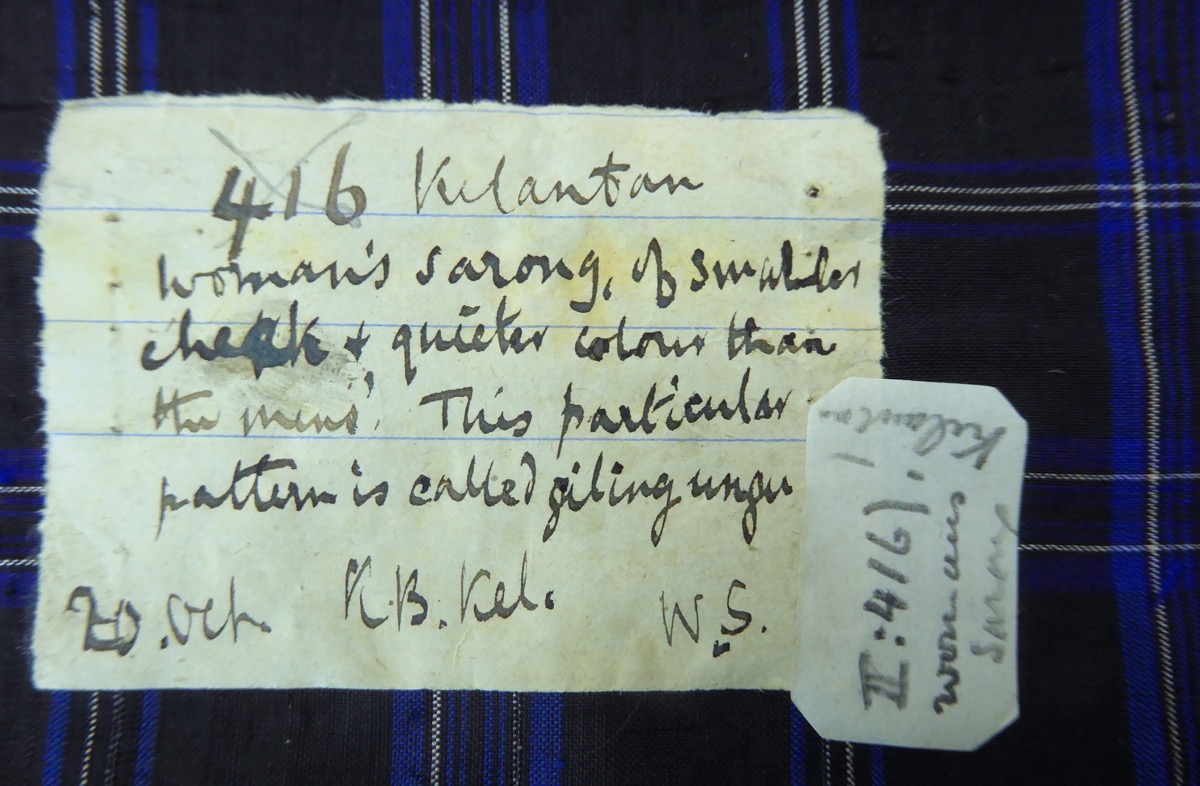 416 Kelantan
woman's sarong, of smaller
check & quieter colour than
the mens'. This particular
pattern is called giling ungu
20. Oct. K.B. Kel. W.S.
II:416).
Kelantan
woman's
sarong